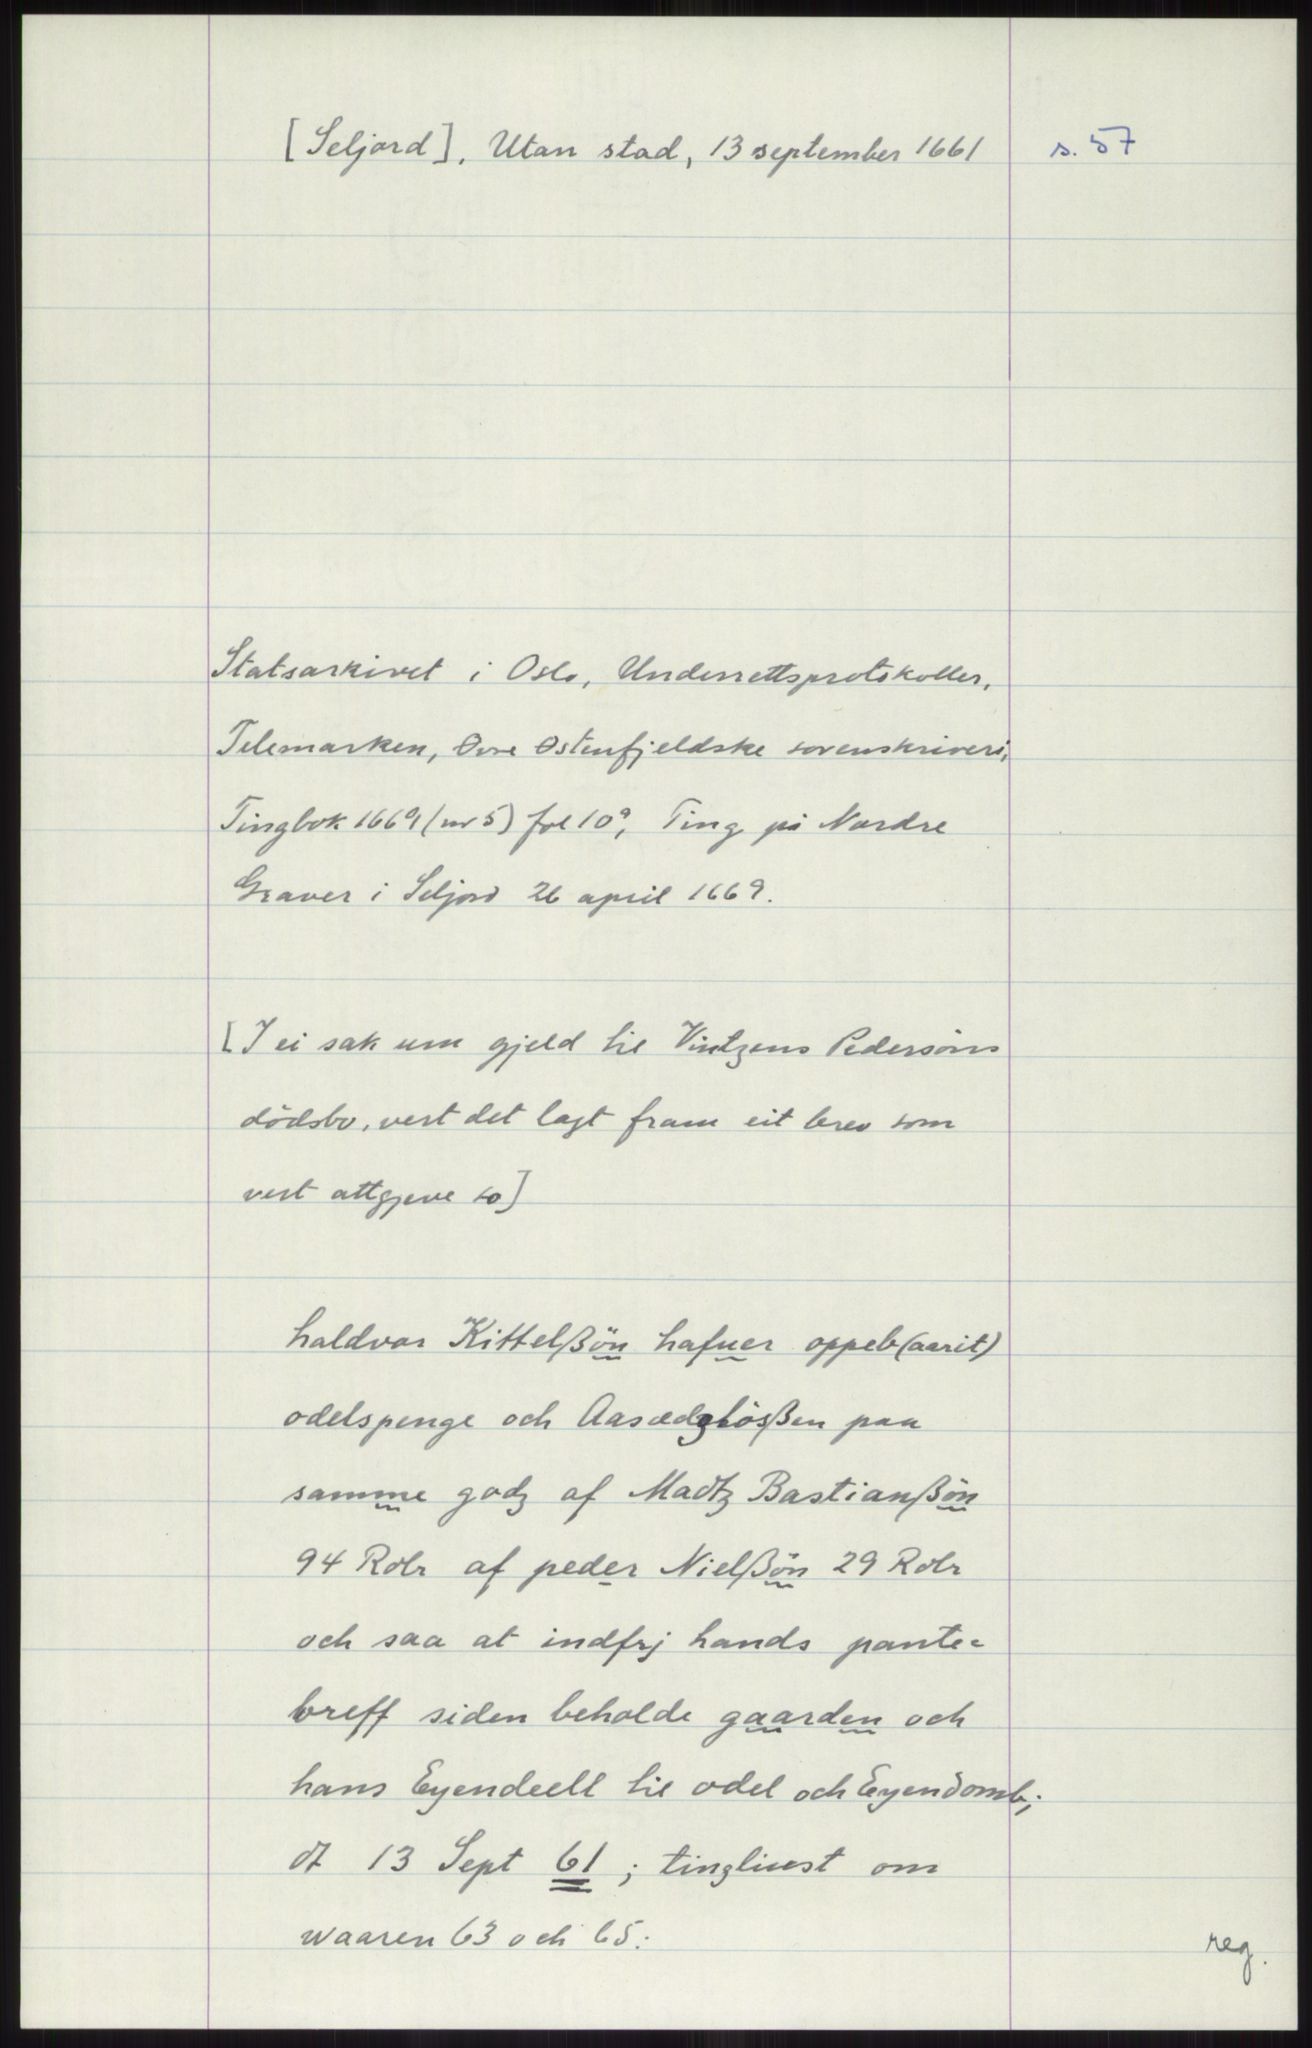 [Seljord], Utan stad, 13 september 1661 s. 57
Statsarkivet i Oslo, Underrettsprotokoller,
Telemarken, Øvre Østenfjeldske sorenskriveri,
Tingbok 1669 (nr 5) fol 10ª, Ting på Nordre
Graver i Seljord 26 april 1669.
[I ei sak um gjeld til Vintzens Pedersøns
dödsbo, vert det lagt fram eit brev som
vert attgjeve so]
haldvor Kittelßön hafuer oppeb(aarit)
odelspenge och Aasædzlösßen paa
samme godz af Madtz Bastianßön
94 Rdlr af peder Nielßön 29 Rdlr
och saa at indfrj hands pante=
breff siden beholde gaarden och
hans Eyendeell til odel och Eyendomb;
dt 13 Sept 61; tingliust om
waaren 63 och 65:
reg.